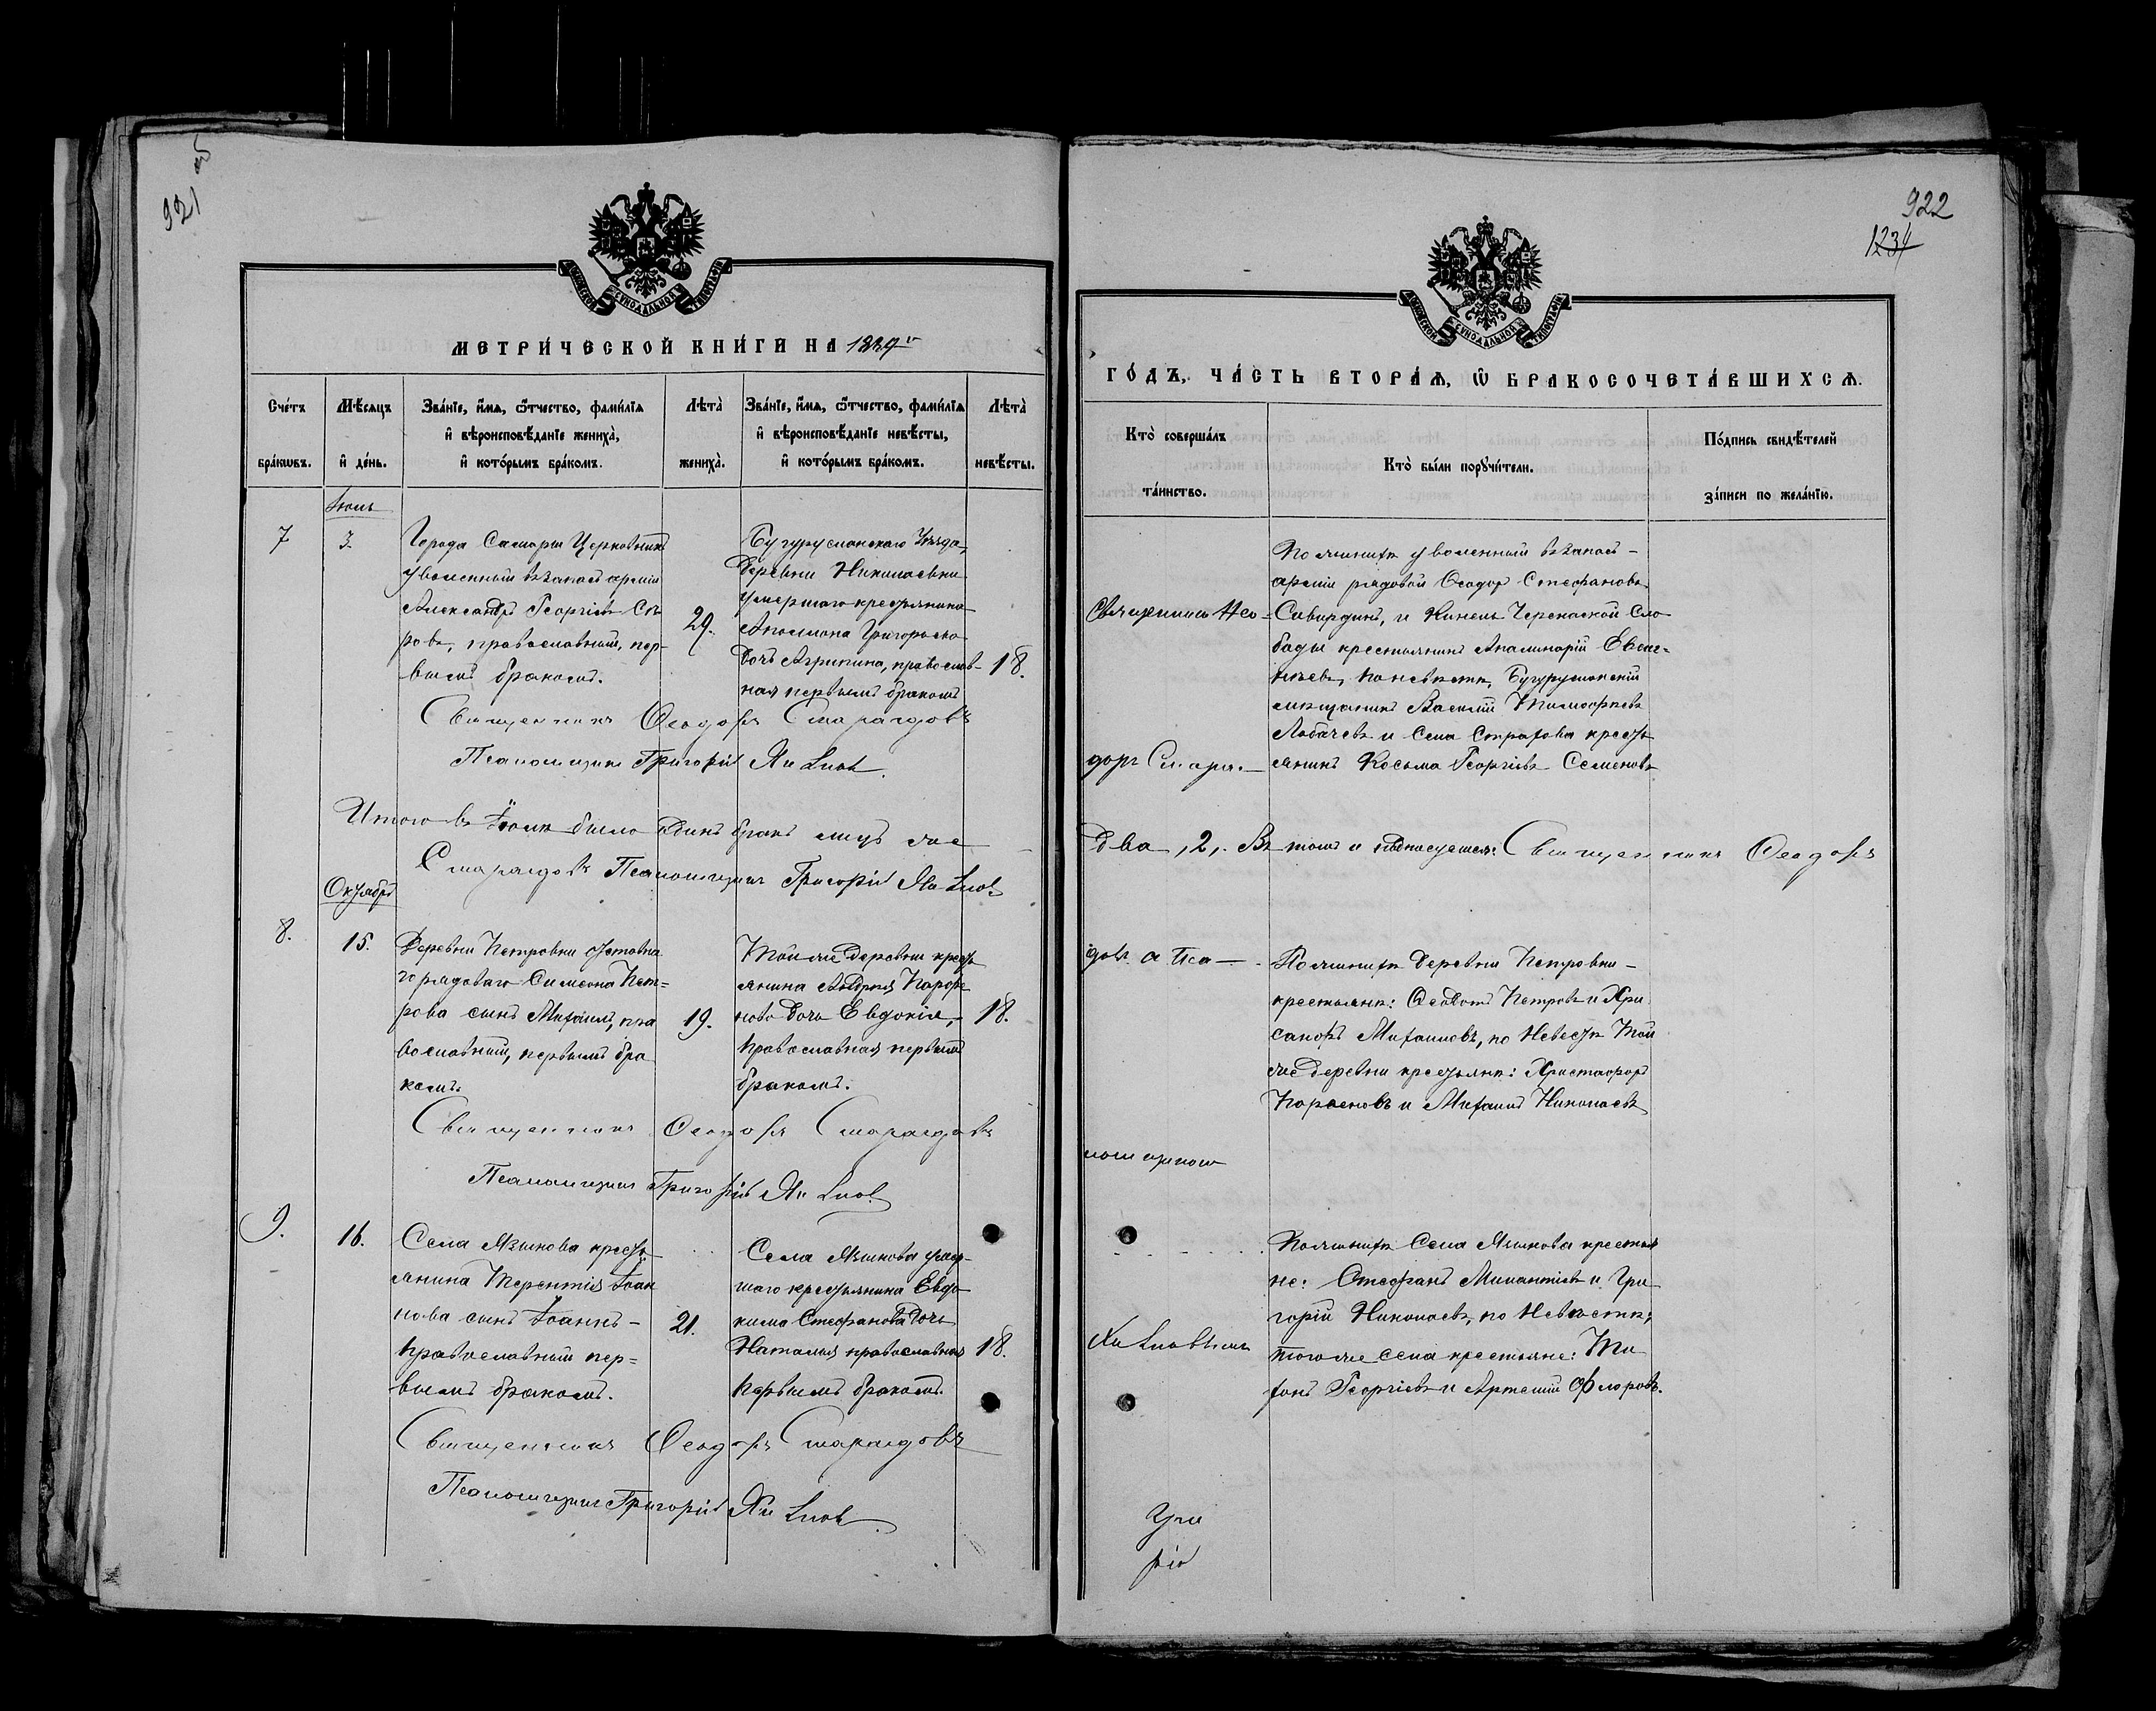 921
об
922
1234
МОСКОВСКОЙ СѴНОДАЛЬНОЙ ТИПОГРАФІИ
МЕТРИ́ЧЕСКОЙ КНИ́ГИ НА 1889й
Сче́тъ бра́кωвъ.
Мѣ́сяцъ и҆ де́нь.
Зва́нїе, и҆́мѧ, ѻ҆́тчество, фами́лїѧ
и҆ вѣроисповѣ́данїе жениха̀,
и҆ кото́рымъ бра́комъ.
Лѣта̀ жениха̀.
Зва́нїе, и҆́мѧ, ѻ҆́тчество, фами́лїѧ
и҆ вѣроисповѣ́данїе невѣ́сты,
и҆ кото́рымъ бра́комъ.
Лѣта̀ невѣ́сты.
Іюль
7
3
Города Самары Церковникъ
уволенный въ запасъ арміи
Александръ Георгіевъ Сѣ
ровъ, православный, пер-
вымъ бракомъ.
29.
Бугурусланскаго Уѣзда,
Деревни Николаевки
умершаго крестьянина
Григорьева
Дочь Агрипина, православ-
ная первымъ бракомъ
18.
Священникъ Ѳеодоръ Смарагдовъ
Псаломщикъ Григорій
Итого въ Іюлѣ было одинъ бракъ лицъ же
Смарагдовъ Псаломщикъ Григорій
Октябрь
8.
15.
Деревни Петровки отставна
го рядоваго Симеона Пет=
рова сынъ Михаилъ, пра
вославный, первымъ бра
комъ.
19.
Той же деревни кресть
янина Андрея
дочь Евдокія,
православная первымъ
бракомъ.
18.
Священникъ Ѳеодоръ Смарагдовъ
Псаломщикъ Григорій
9.
16.
Села кресть
янина Терентія Іоан
нова сынъ Іоаннъ-
православный пер=
вымъ бракомъ.
21.
Села умер-
шаго крестьянина Евдо
кима Стефанова дочь
Наталья православная
первымъ бракомъ.
18.
Священникъ Ѳеодоръ Смарагдовъ
Псаломщикъ Григорій
ГО́ДЪ, ЧА́СТЬ ВТОРА́Ѧ, Ѡ҆ БРАКОСОЧЕТА́ВШИХСѦ.
Кто̀ соверша́лъ та́инство.
Кто̀ бы́ли порꙋчи́тели.
По́дпись свидѣ́телей за́писи по жела́нїю.
Священникъ Ѳео-
доръ Смара-
По женихѣ уволенный въ запасъ-
арміи рядовой Ѳеодоръ Стефановъ
и Кинель Черкаской Сло
боды крестьянинъ Аполинарій
по невѣстѣ, Бугурусланскій
мѣщанинъ Василій Тимофѣевъ
Лобачевъ и Села кресть
янинъ Косьма Георгіевъ Семеновъ
два, 2, Въ томъ и подписуемся: Священникъ Ѳеодоръ
гдовъ а Пса-
ломщикомъ
По женихѣ деревни Петровки-
крестьяне: Ѳедотъ Петровъ и Хри
санфъ Михаиловъ, по Невестѣ Той
же деревни крестьяне: Христофоръ
и Михаилъ Николаевъ
По женихѣ Села крестья
не: Стефанъ и Гри
горій Николаевъ, по Невѣстѣ;
того же села крестьяне: Ти
хонъ Георгіевъ и Артемій Флоровъ.
Гри
рій